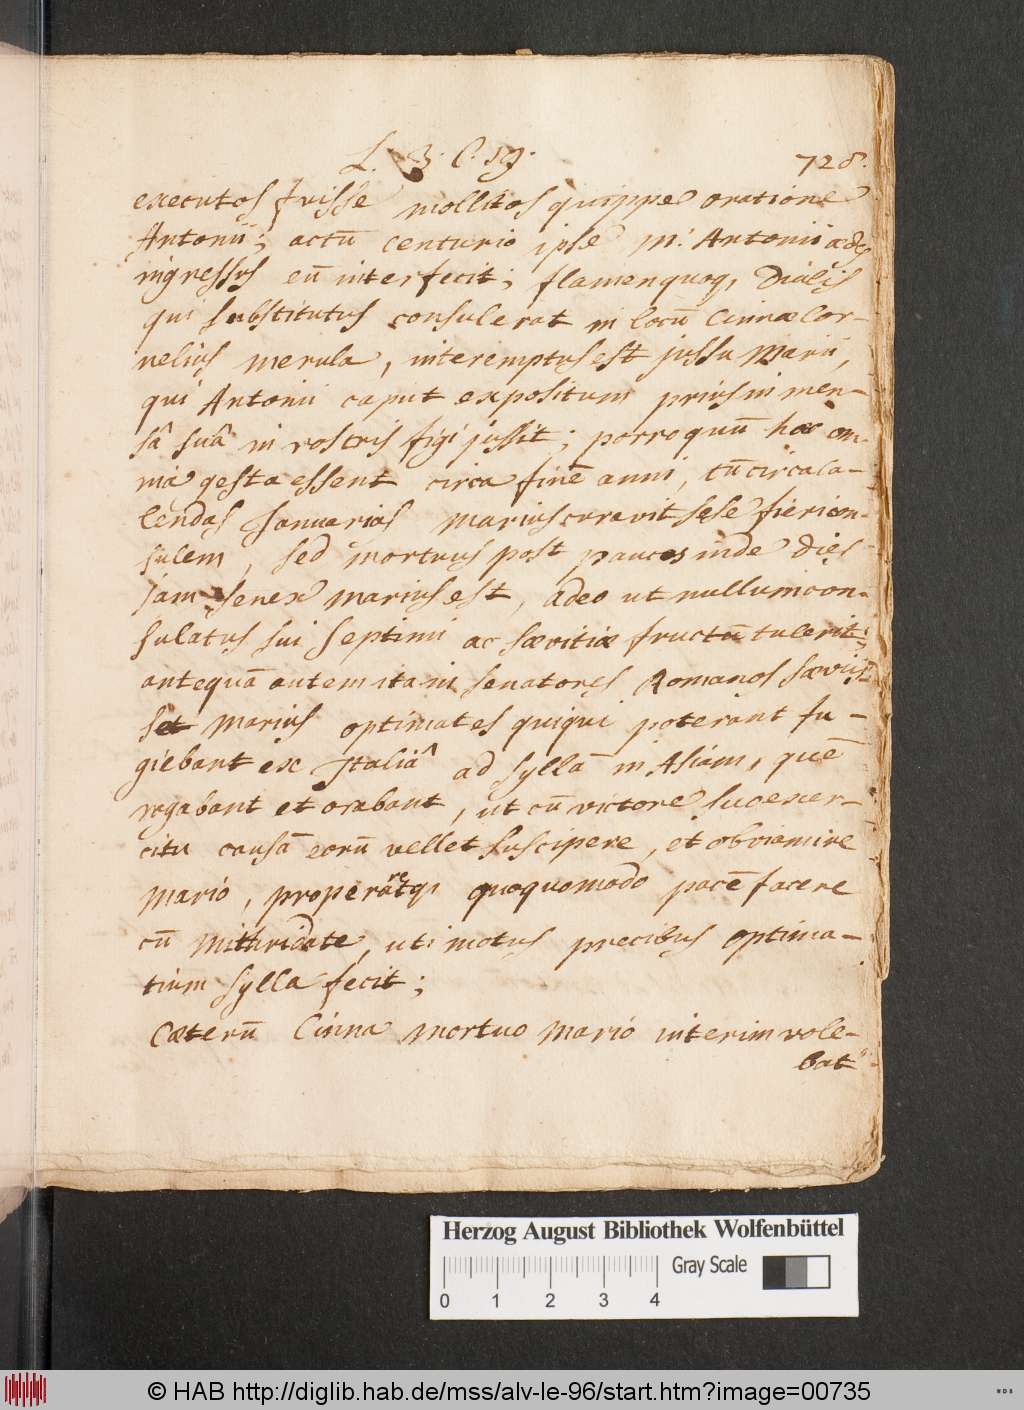 L. 3. C. 19.
728.
executos fuisse mollitos quippe oratione
Antonii; actū centurio ipse M. Antonii ædes
ingressus eū interfecit; flamen quoq, Dialis
qui substitutus consul erat in locū Cinnæ Cor-
nelius Merula, interemptus est jussu Marii,
qui Antonii caput expositum prius in men-
sâ suâ in rostris figi jussit; porro quū hæc om-
nia gesta essent circa finē anni, tū circa ca-
lendas Januarias Marius curavit sese fieri con-
sulem, sed mortuus post paucos inde dies
jam senex Marius est, adeo ut nullum con-
sulatus sui septimi ac sævitiæ fructū tulerit;
antequā autem ita in senatores Romanos sæviis-
set Marius optimates quiqui poterant fu-
giebant ex Italiâ ad Syllā in Asiam, quē
rogabant et orabant, ut cū victore suo exer-
citu causā eorū vellet suscipere, et obviam ire
Mario, properaretq, quoquomodo pacē facere
cū Mithridate, uti motus precibus optima-
tium Sylla fecit;
Cæterū Cinna mortuo Mario interim vole-
bat
Herzog August Bibliothek Wolfenbüttel
Gray Scale
0 1 2 3 4
© HAB http://diglib.hab.de/mss/alv-le-96/start.htm?image=00735